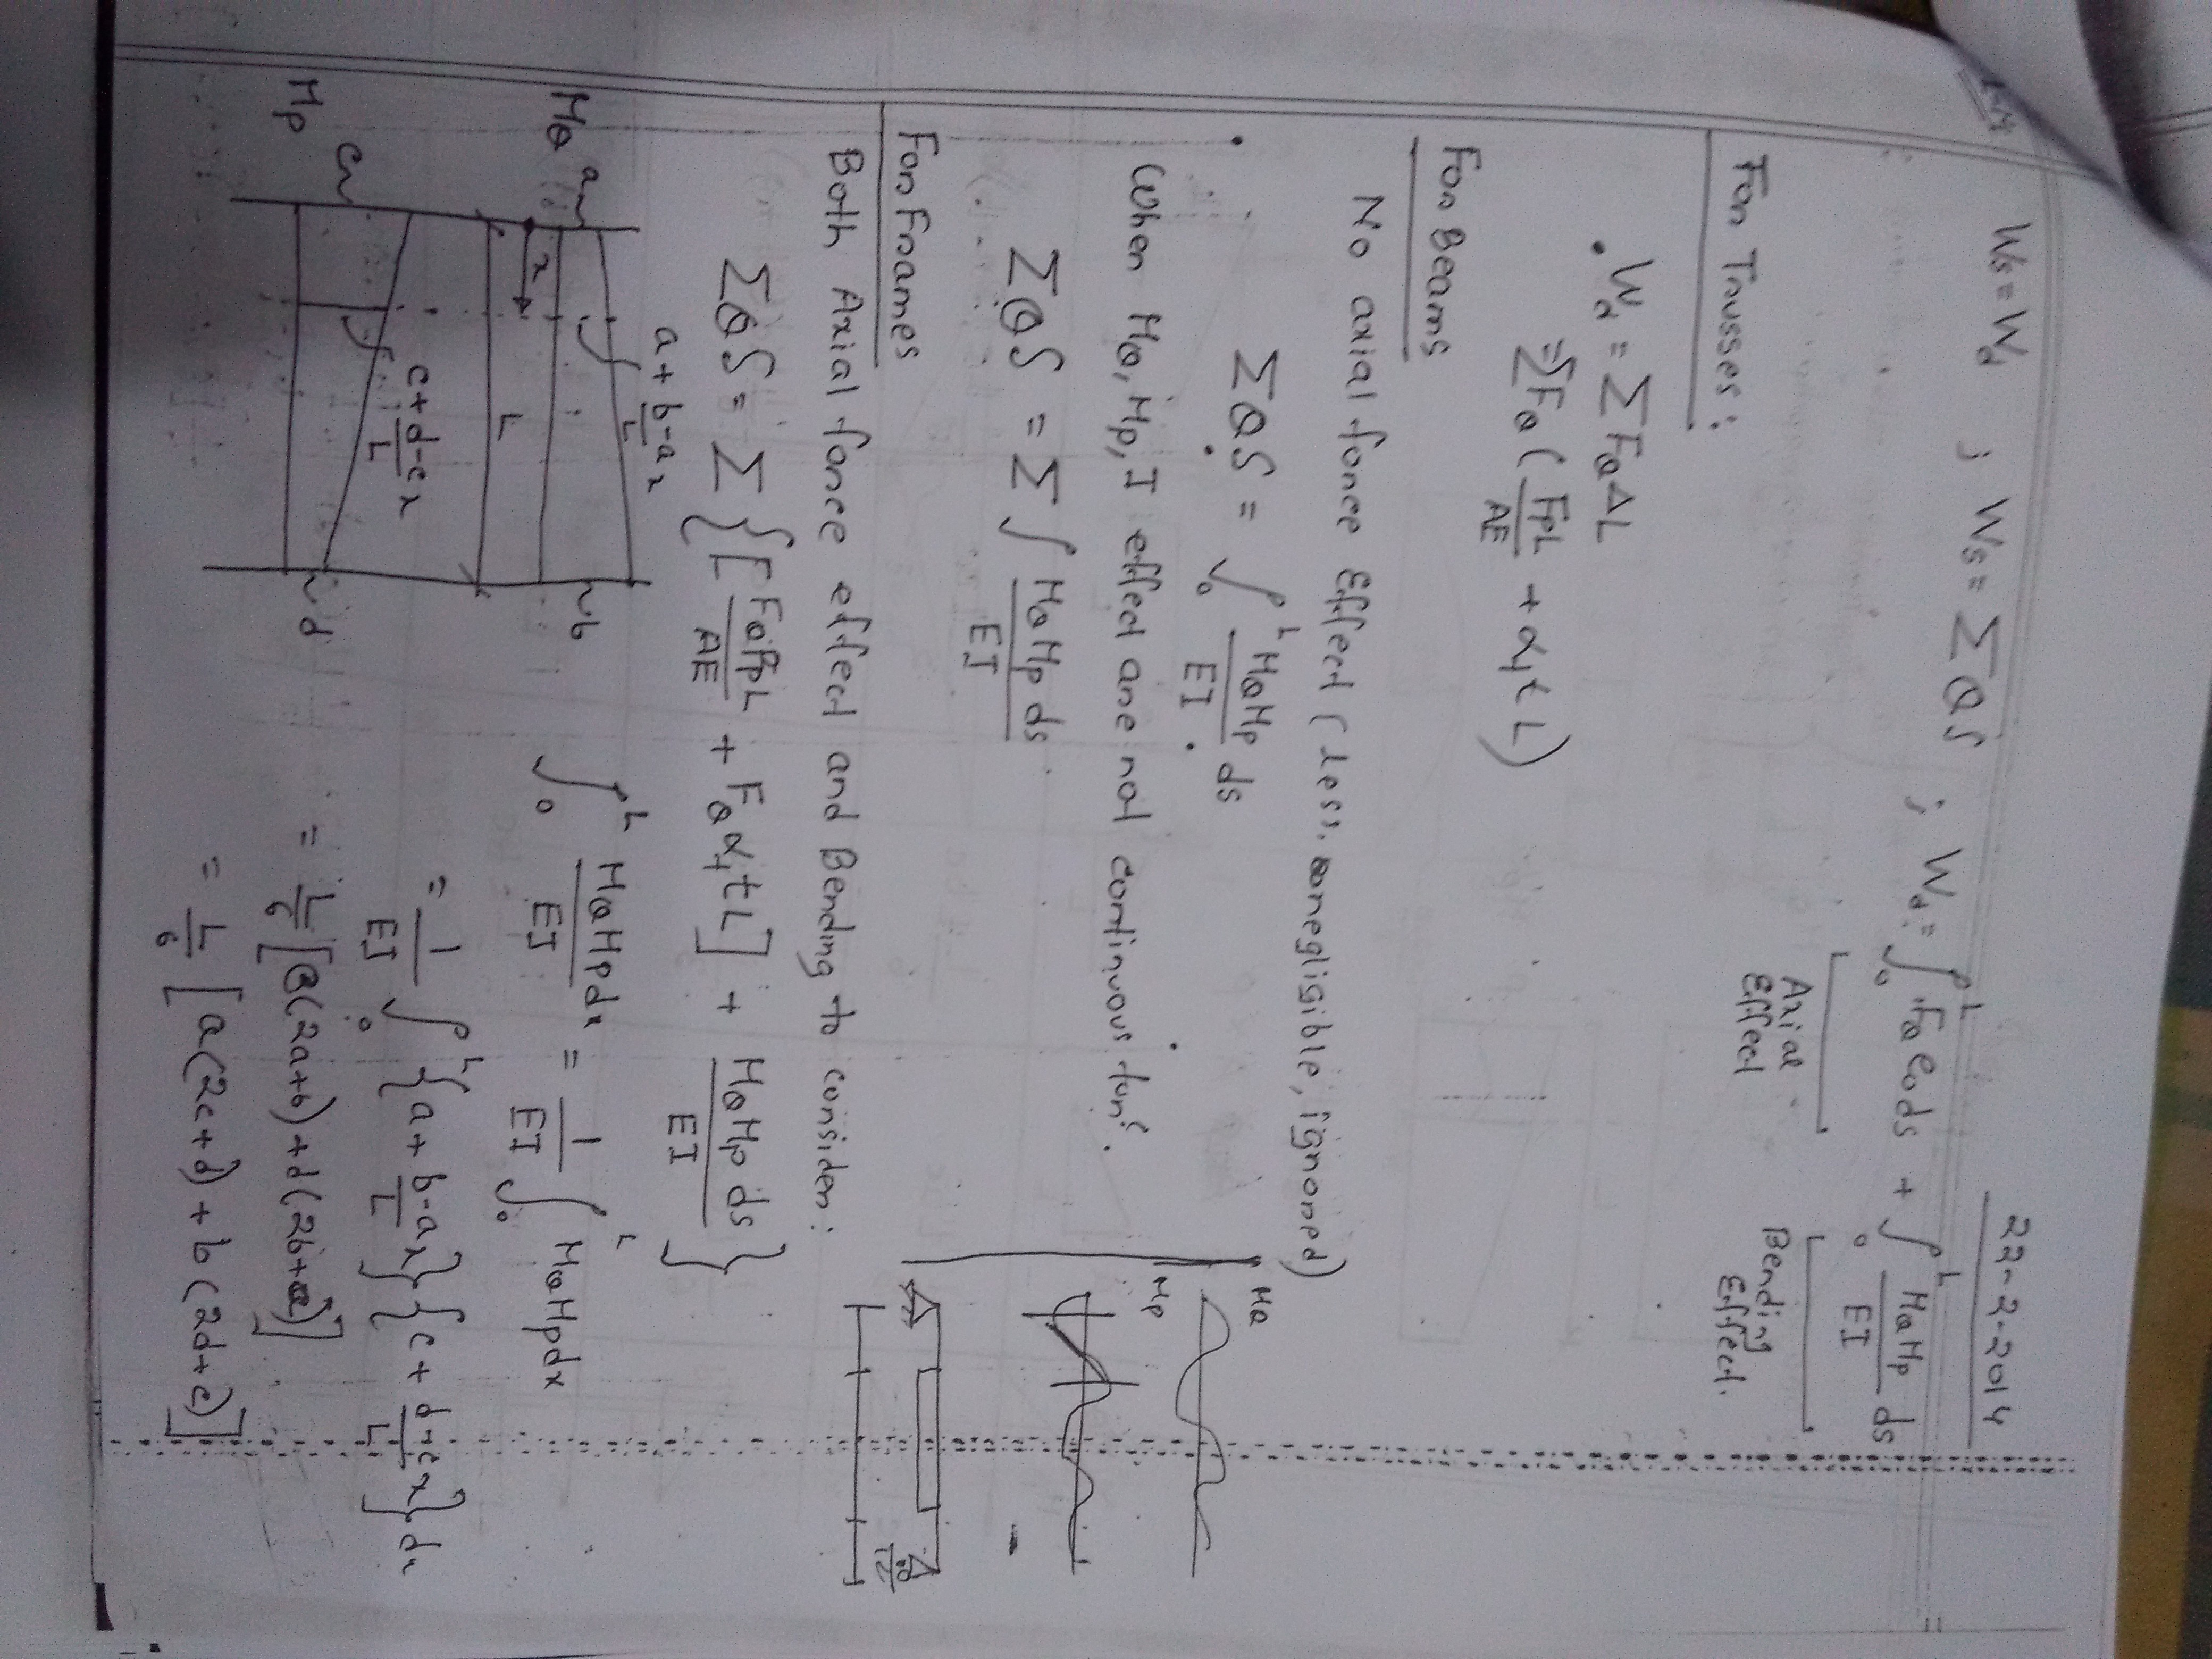 22-2-2014
Ws = Wd ; Ws = ΣQδ ; Wd = ∫₀ᴸ FQ e₀ ds + ∫₀ᴸ MQMp/EI ds
Axial Effect
Bending Effect.
For Trusses :
Wd = Σ FQ ΔL
= Σ FQ ( FpL/AE + αt t L )
For Beams
No axial force Effect ( less. or negligible, ignored)
ΣQδ = ∫₀ᴸ MQMp/EI ds
When MQ, Mp, I effect are not continuous fun².
ΣQδ = Σ ∫ MQMp ds/EI
MQ
Mp
For Frames
Both Axial force effect and Bending to consider :
ΣQδ = Σ { [ FQFpL/AE + FQ αt t L ] + MQMp ds/EI }
a + b-a/L x
MQ a b
x
L
c + d-c/L x
Mp c d
∫₀ᴸ MQMpdx/EI = 1/EI ∫₀ᴸ MQMpdx
= 1/EI ∫₀ᴸ { a + b-a/L x } { c + d-c/L x } dx
= L/6 [ c(2a+b) + d(2b+a) ]
= L/6 [ a(2c+d) + b(2d+c) ]